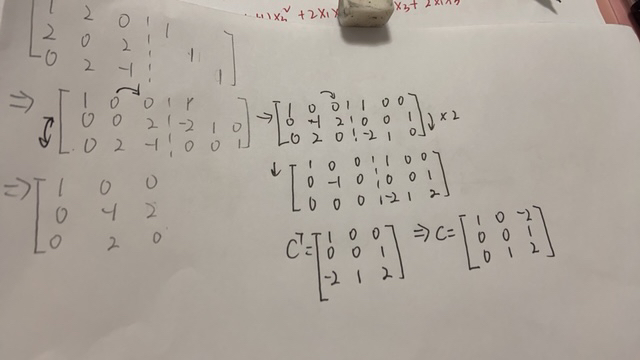 x₃ + 2x₁x₃
1 2 0 | 1
2 0 2 | 1
0 2 -1 | 1
⇒ [1 0 0 | 1
0 0 2 | -2 1 0
0 2 -1 | 0 0 1]
→ [1 0 0 | 1 0 0
0 -1 2 | 0 0 1
0 2 0 | -2 1 0] ↓ ×2
⇒ [1 0 0
0 -1 2
0 2 0]
↓ [1 0 0 | 1 0 0
0 -1 0 | 0 0 1
0 0 0 | -2 1 2]
Cᵀ = [1 0 0
0 0 1
-2 1 2]
⇒ C = [1 0 -2
0 0 1
0 1 2]